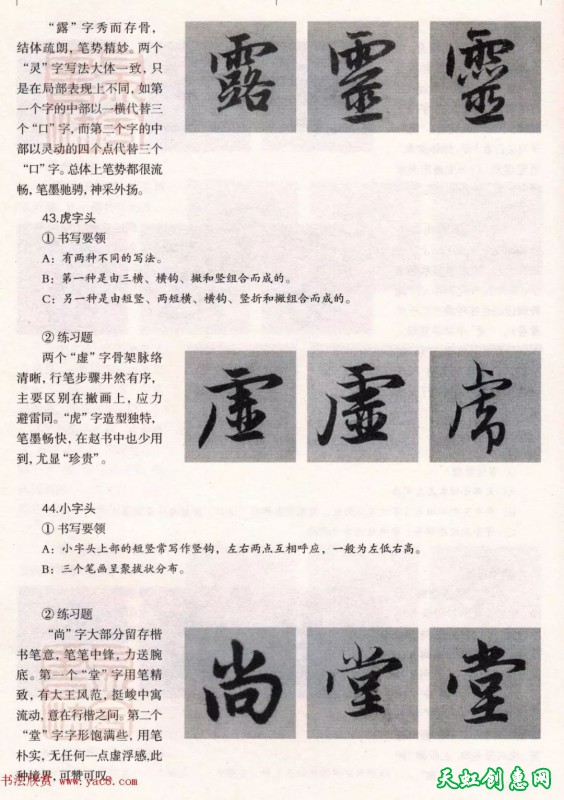 “露”字秀而存骨，
结体疏朗，笔势精妙。两个
“灵”字写法大体一致，只
是在局部表现上不同，如第
一个字的中部以一横代替三
个“口”字，而第二个字的中
部以灵动的四个点代替三个
“口”字。总体上笔势都很流
畅，笔墨驰骋，神采外扬。
露 靈 靈
43.虎字头
①书写要领
A：有两种不同的写法。
B：第一种是由三横、横钩、撇和竖组合而成的。
C：另一种是由短竖、两短横、横钩、竖折和撇组合而成的。
②练习题
两个“虚”字骨架脉络
清晰，行笔步骤井然有序，
主要区别在撇画上，应力
避雷同。“虎”字造型独特，
笔墨畅快，在赵书中也少用
到，尤显“珍贵”。
虛 虛 虎
44.小字头
①书写要领
A：小字头上部的短竖常写作竖钩，左右两点互相呼应，一般为左低右高。
B：三个笔画呈聚拔状分布。
②练习题
“尚”字大部分留存楷
书笔意，笔笔中锋，力送腕
底。第一个“堂”字用笔精
致，有大王风范，挺峻中寓
流动，意在行楷之间。第二个
“堂”字字形饱满些，用笔
朴实，无任何一点虚浮感，此
种境界，可赞可叹。
尚 堂 堂
书法欣赏 www.yac8.com
天虹创惠网